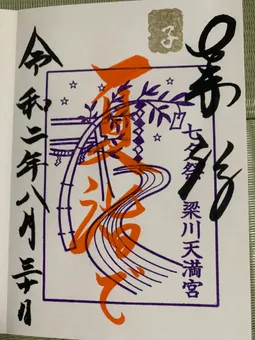 奉拝
子
七夕祭 梁川天満宮
夏詣で
令和二年八月三十日